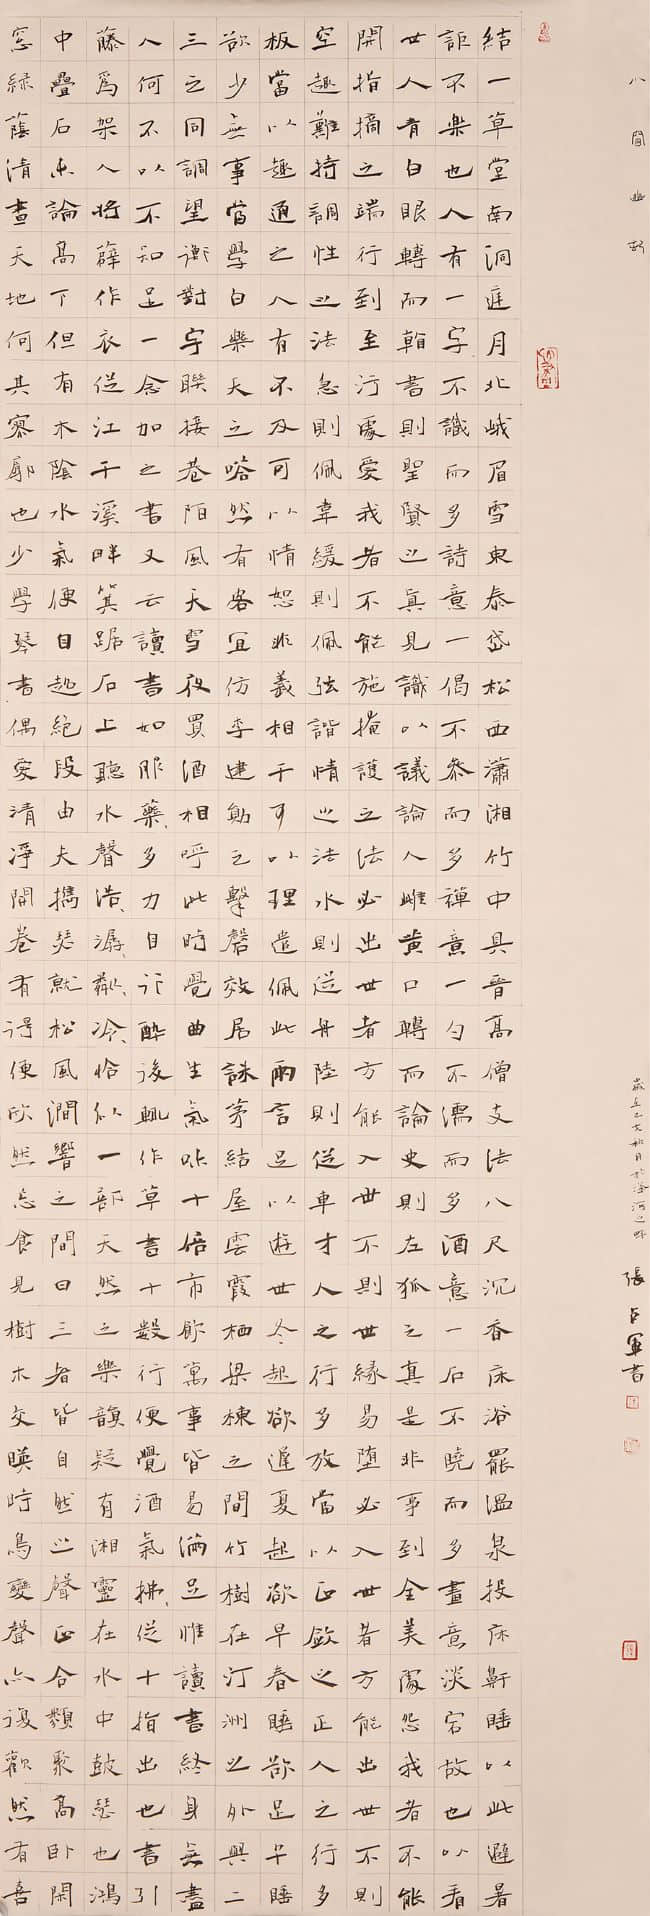 小窗幽記
結一草堂南洞庭月北峨眉雪東泰岱松西瀟湘竹中具晉高僧支法八尺沉香床浴罷溫泉投床鼾睡以此避暑
詎不樂也人有一字不識而多詩意一偈不參而多禪意一勺不濡而多酒意一石不曉而多畫意淡宕故也以看
世人有白眼轉而翰書則聖賢之真見識以議論人雌黃口轉而論史則左狐之真是非事到全美處怨我者不能
開指摘之端行到至行處愛我者不能施掩護之法必出世者方能入世不則世緣易墮必入世者方能出世不則
空趣難持調性之法急則佩韋緩則佩弦諧情之法水則從舟陸則從車才人之行多放當以正斂之正人之行多
板當以趣通之人有不及可以情恕非義相干可以理遣佩此兩言足以遊世冬起欲遲夏起欲早春睡欲足午睡
欲少無事當學白樂天之嗒然有客宜仿李建勳之擊磬效居誅茅結屋雲霞栖梁棟之間竹樹在汀洲之外與二
三之同調望衡對宇聯接巷陌風天雪夜買酒相呼此時覺曲生氣味十倍市飲萬事皆易滿足惟讀書終身無盡
人何不以不知足一念加之書又云讀書如服藥々多力自行醉後輒作草書十數行便覺酒氣拂々從十指出也書引
藤爲架人將薜作衣從江干溪畔箕踞石上聽水聲浩々潺々粼々冷々恰似一部天然之樂韻疑有湘靈在水中鼓瑟也鴻
中疊石未論高下但有木陰水氣便自超絕段由夫攜瑟就松風澗響之間曰三者皆自然之聲正合類聚高臥閑
窓綠蔭清晝天地何其寥廓也少學琴書偶愛清淨開卷有得便欣然忘食見樹木交映時鳥變聲亦復歡然有喜
張占軍書